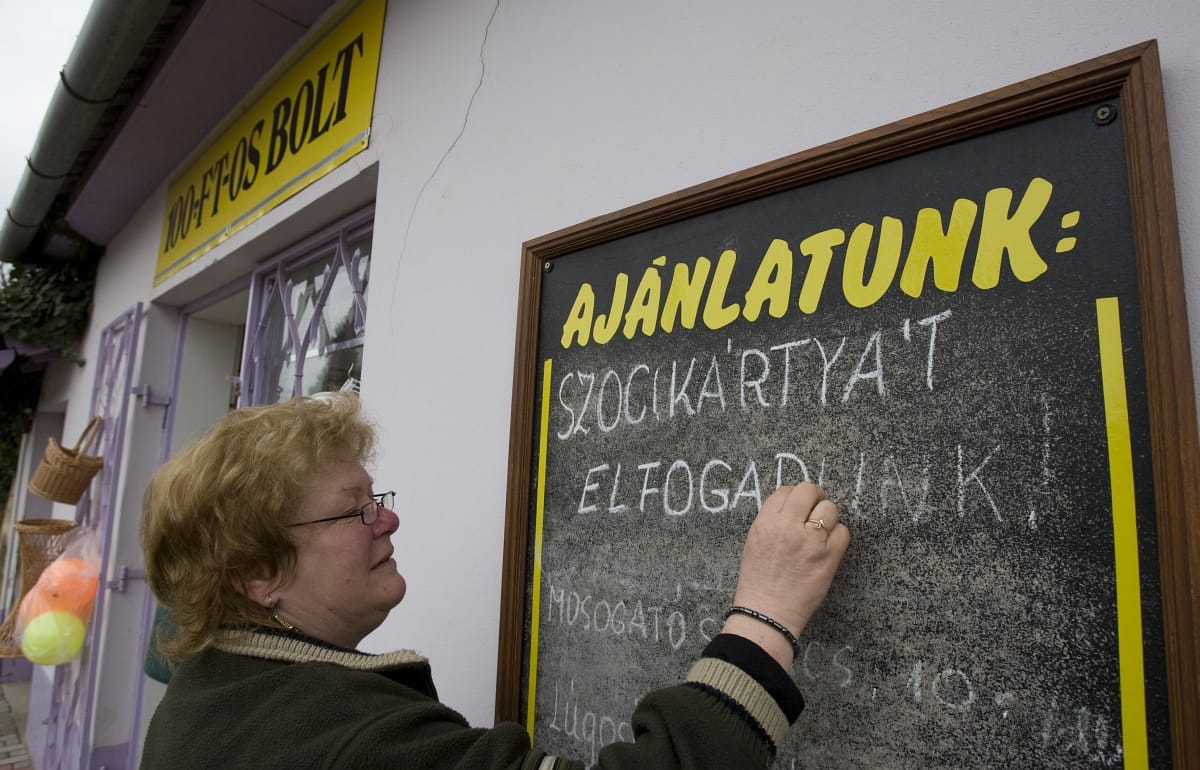 100-FT-OS BOLT
AJÁNLATUNK:
SZOCIKÁRTYÁ'T
ELFOGADUNK!
MOSOGATÓ
CS, 10.-
LÚGOS